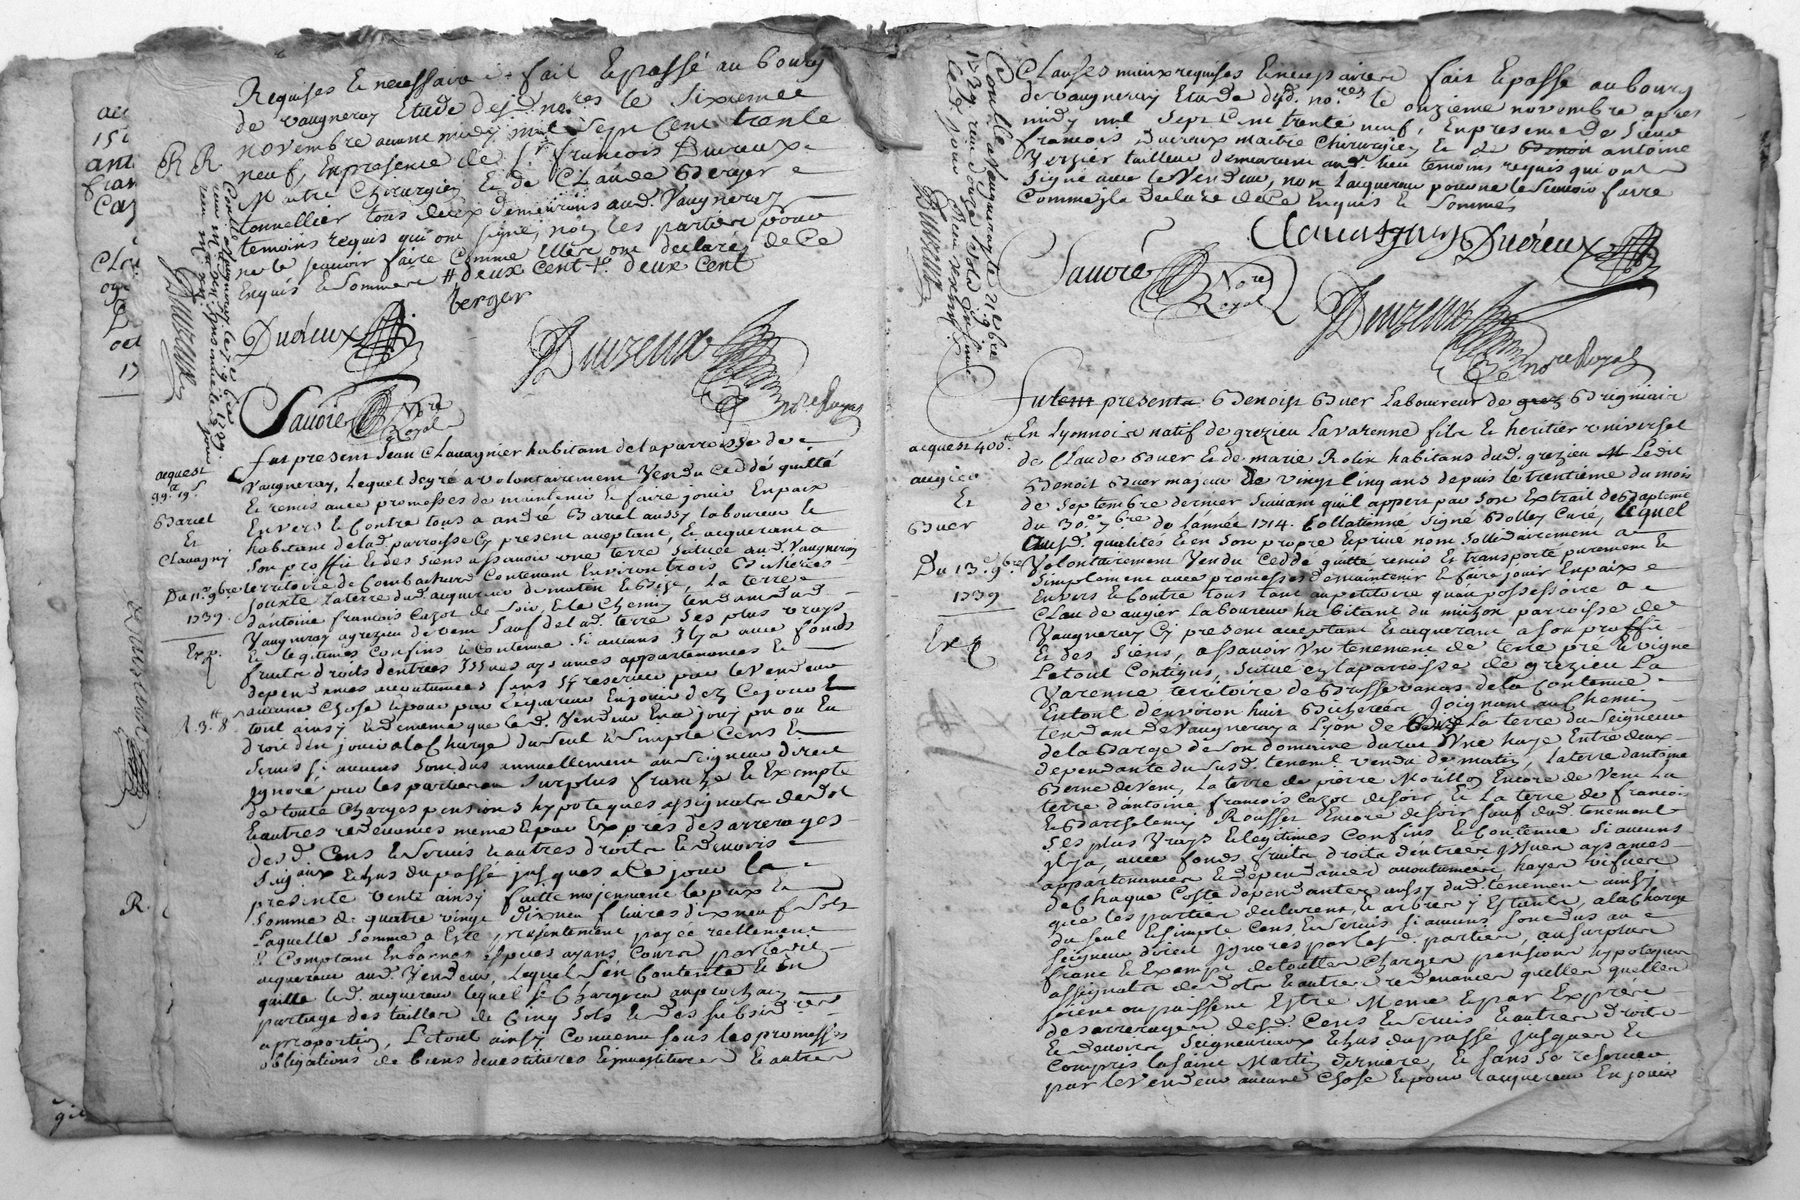 Requises et necessaires fait et passé au bourg
de vaugneray Etude desd. no.res le sixieme
novembre avant midy mil sept cent trente
neuf, En presence de S.r françois Dureux
Maitre Chirurgien et de Claude Berger
tonnellier tous deux demeurans aud. Vaugneray
temoins requis qui ont signé, non les parties pour
ne le scavoir faire comme elles ont declaré de ce
Enquis et sommés # deux cent deux cent
berger
Dureux
Duuzeux
no.re Royal
Sauoré N.re
Royal
R R.
acquest
99.tt 19.s
Barret
Et
Clavagny
Du 11.e 9.bre
1739.
Exp.
fut present Jean Clavagnier habitant de la parroisse de
Vaugneray, Lequel de gré a volontairement Vendu ceddé quitté
Et remis avec promesses de maintenir et faire jouir En paix
Envers et contre tous a andré Barret aussy laboureur et
habitant de lad. parroisse Cy present aceptant, Et acquerant a
son proffit et des siens assavoir une terre située aud. Vaugneray
territoire de Combachard contenant Environ trois Bicherées
Jouxte la terre dud. acquereur de matin et bize, La terre
d'antoine francois Cazot de soir, Et le chemin tendant dud.
Vaugneray a grezieu de vent sauf de lad. terre ses plus vrays
Et legitimes confins et contenue si aucuns Il y a avec fonds
fruits droits d'entrées Issues aysances appartenances Et
dependances accoutumées sans s'y reserver par le Vendeur
aucune chose Et pour par l'acquereur En jouir dez Ce jour Et
tout ainsy Et de meme que led. Vendeur En a jouy pu ou Eu
droit d'en jouir a la Charge du seul et simple Cens Et
servis s'il aucuns sont dus annuellement au seigneur direct
Ignoré par les parties au surplus franche Et Exempte
de toute charges pensions hypoteques assignats de dot
Et autres redevances meme Et par Exprès des arrerages
desd. Cens Et servis Et autres droits Et devoirs
seig.aux Echus du passé jusques a ce jour la
presente vente ainsy faitte moyennant le prix Et
somme de quatre vingt dix neuf livres dix neuf sols
Laquelle somme a Esté presentement payée reellement
Et comptant En bonnes especes ayans cours par led.
acquereur aud. Vendeur, Lequel s'en contente Et En
quitte led. acquereur lequel se chargera au prochain
partage des tailles de cinq sols Et des subsid.res
a proportion, Le tout ainsy convenu sous les promesses
obligations de biens devestitures Et investitures Et autres
Clauses mieux requises Et necessaires fait Et passé au bourg
de vaugneray Etude desd. no.res le onzieme novembre apres
midy mil sept cent trente neuf, En presence de sieur
francois Dureux maitre Chirurgien Et de antoine
Verzier tailleur demeurans aud. lieu temoins requis qui ont
signé avec le Vendeur, non l'acquereur pour ne le scavoir faire
Comme Il a declaré de ce Enquis Et sommés
Dureux
Sauoré N.re
Royal
Duuzeux
no.re Royal
acquest 400.tt
augier
Et
Buer
Du 13.e 9.bre
1739
Exp
Furent presents Benoist Buer Laboureur de Brigniais
En Lyonnois natif de grezieu Lavarenne fils Et heritier universel
de Claude Buer Et de marie Rolin habitans dud. grezieu Ledit
Benoist Buer majeur de vingt cinq ans depuis le trentieme du mois
de septembre dernier suivant qu'il appert par son Extrait de Bapteme
du 30.e 7.bre de l'année 1714. Collationné signé Bolley Curé, Lequel
ausd. qualités Et en son propre Et privé nom sollidairement a
Volontairement Vendu Ceddé quitté remis Et transporté purement Et
simplement avec promesses de maintenir Et faire jouir En paix
Envers Et contre tous tant au petitoire qu'au possessoire a
Claude augier Laboureur habitant du mizon parroisse de
Vaugneray Cy present acceptant Et acquerant a son proffit
Et des siens, assavoir Un tenement de terre pré Et vigne
Le tout Contigus, situé En la parroisse de grezieu La
Varenne territoire de Brossevanas de la contenue
En tout d'environ huit Bicherées Joignant au chemin
tendant de Vaugneray a Lyon de La terre du seigneur
de la Barge de son domaine du rut Une haye Entre deux
dependante du susd. tenem.t vendu de matin, La terre d'antoine
Berne de vent, La terre de pierre Morillon Encore de Vent La
terre d'antoine francois Cazot de soir Et La terre de francois
Et Barthelemy Rousset Encore de soir sauf dud. tenement
ses plus Vrays Et legitimes Confins Et Contenue si aucuns
Il y a, avec fonds fruits droits d'entrées Issues aysances
appartenances Et dependances accoutumées, hayes vifves
de chaque Costé dependantes aussy dud. tenement ainsy
que les parties declarent, Et arbres y Estants, a la charge
du seul Et simple Cens Et servis si aucuns sont dus au
seigneur direct Ignorés par lesd. parties, au surplus
franc Et Exempt de touttes charges pensions hypoteques
assignats de dots Et autres redevances quelles quelles
soient ou puissent Estre Meme Et par Exprès
des arrerages desd. Cens Et servis Et autres droits
Et devoirs seigneuriaux Echus du passé Jusques Et
Compris la saint Martin derniere, Et sans se reserver
par le Vendeur aucune chose Et pour l'acquereur En jouir